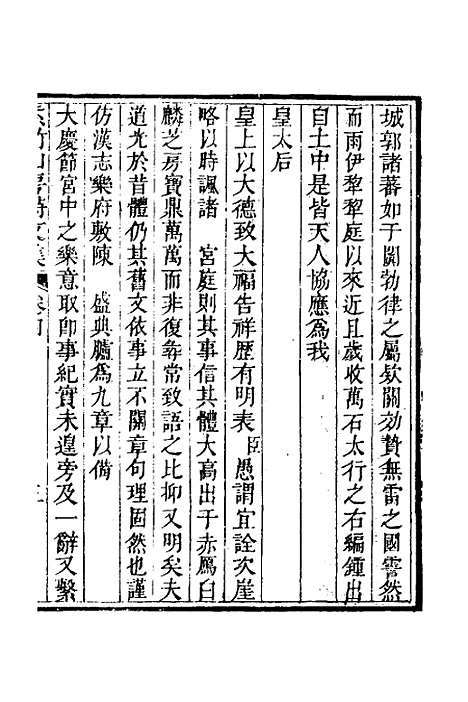 城郭諸蕃如于闐勃律之屬欵關効贄無雷之國霅然
而雨伊犂犂庭以來近且歲收萬石太行之右編鍾出
自土中是皆天人協應為我
皇太后
皇上以大德致大福吿祥歷有明表臣愚謂宜詮次崖
略以時諷諸　宮庭則其事信其體大高出于赤鴈白
麟芝房寶鼎萬萬而非復尋常致語之比抑又明矣夫
道光於昔體仍其舊文依事立不關章句理固然也謹
仿漢志樂府敷陳　盛典臚為九章以備
大慶節宮中之樂意取卽事紀實未遑旁及一辭又繫
紫竹山房詩文集　卷四